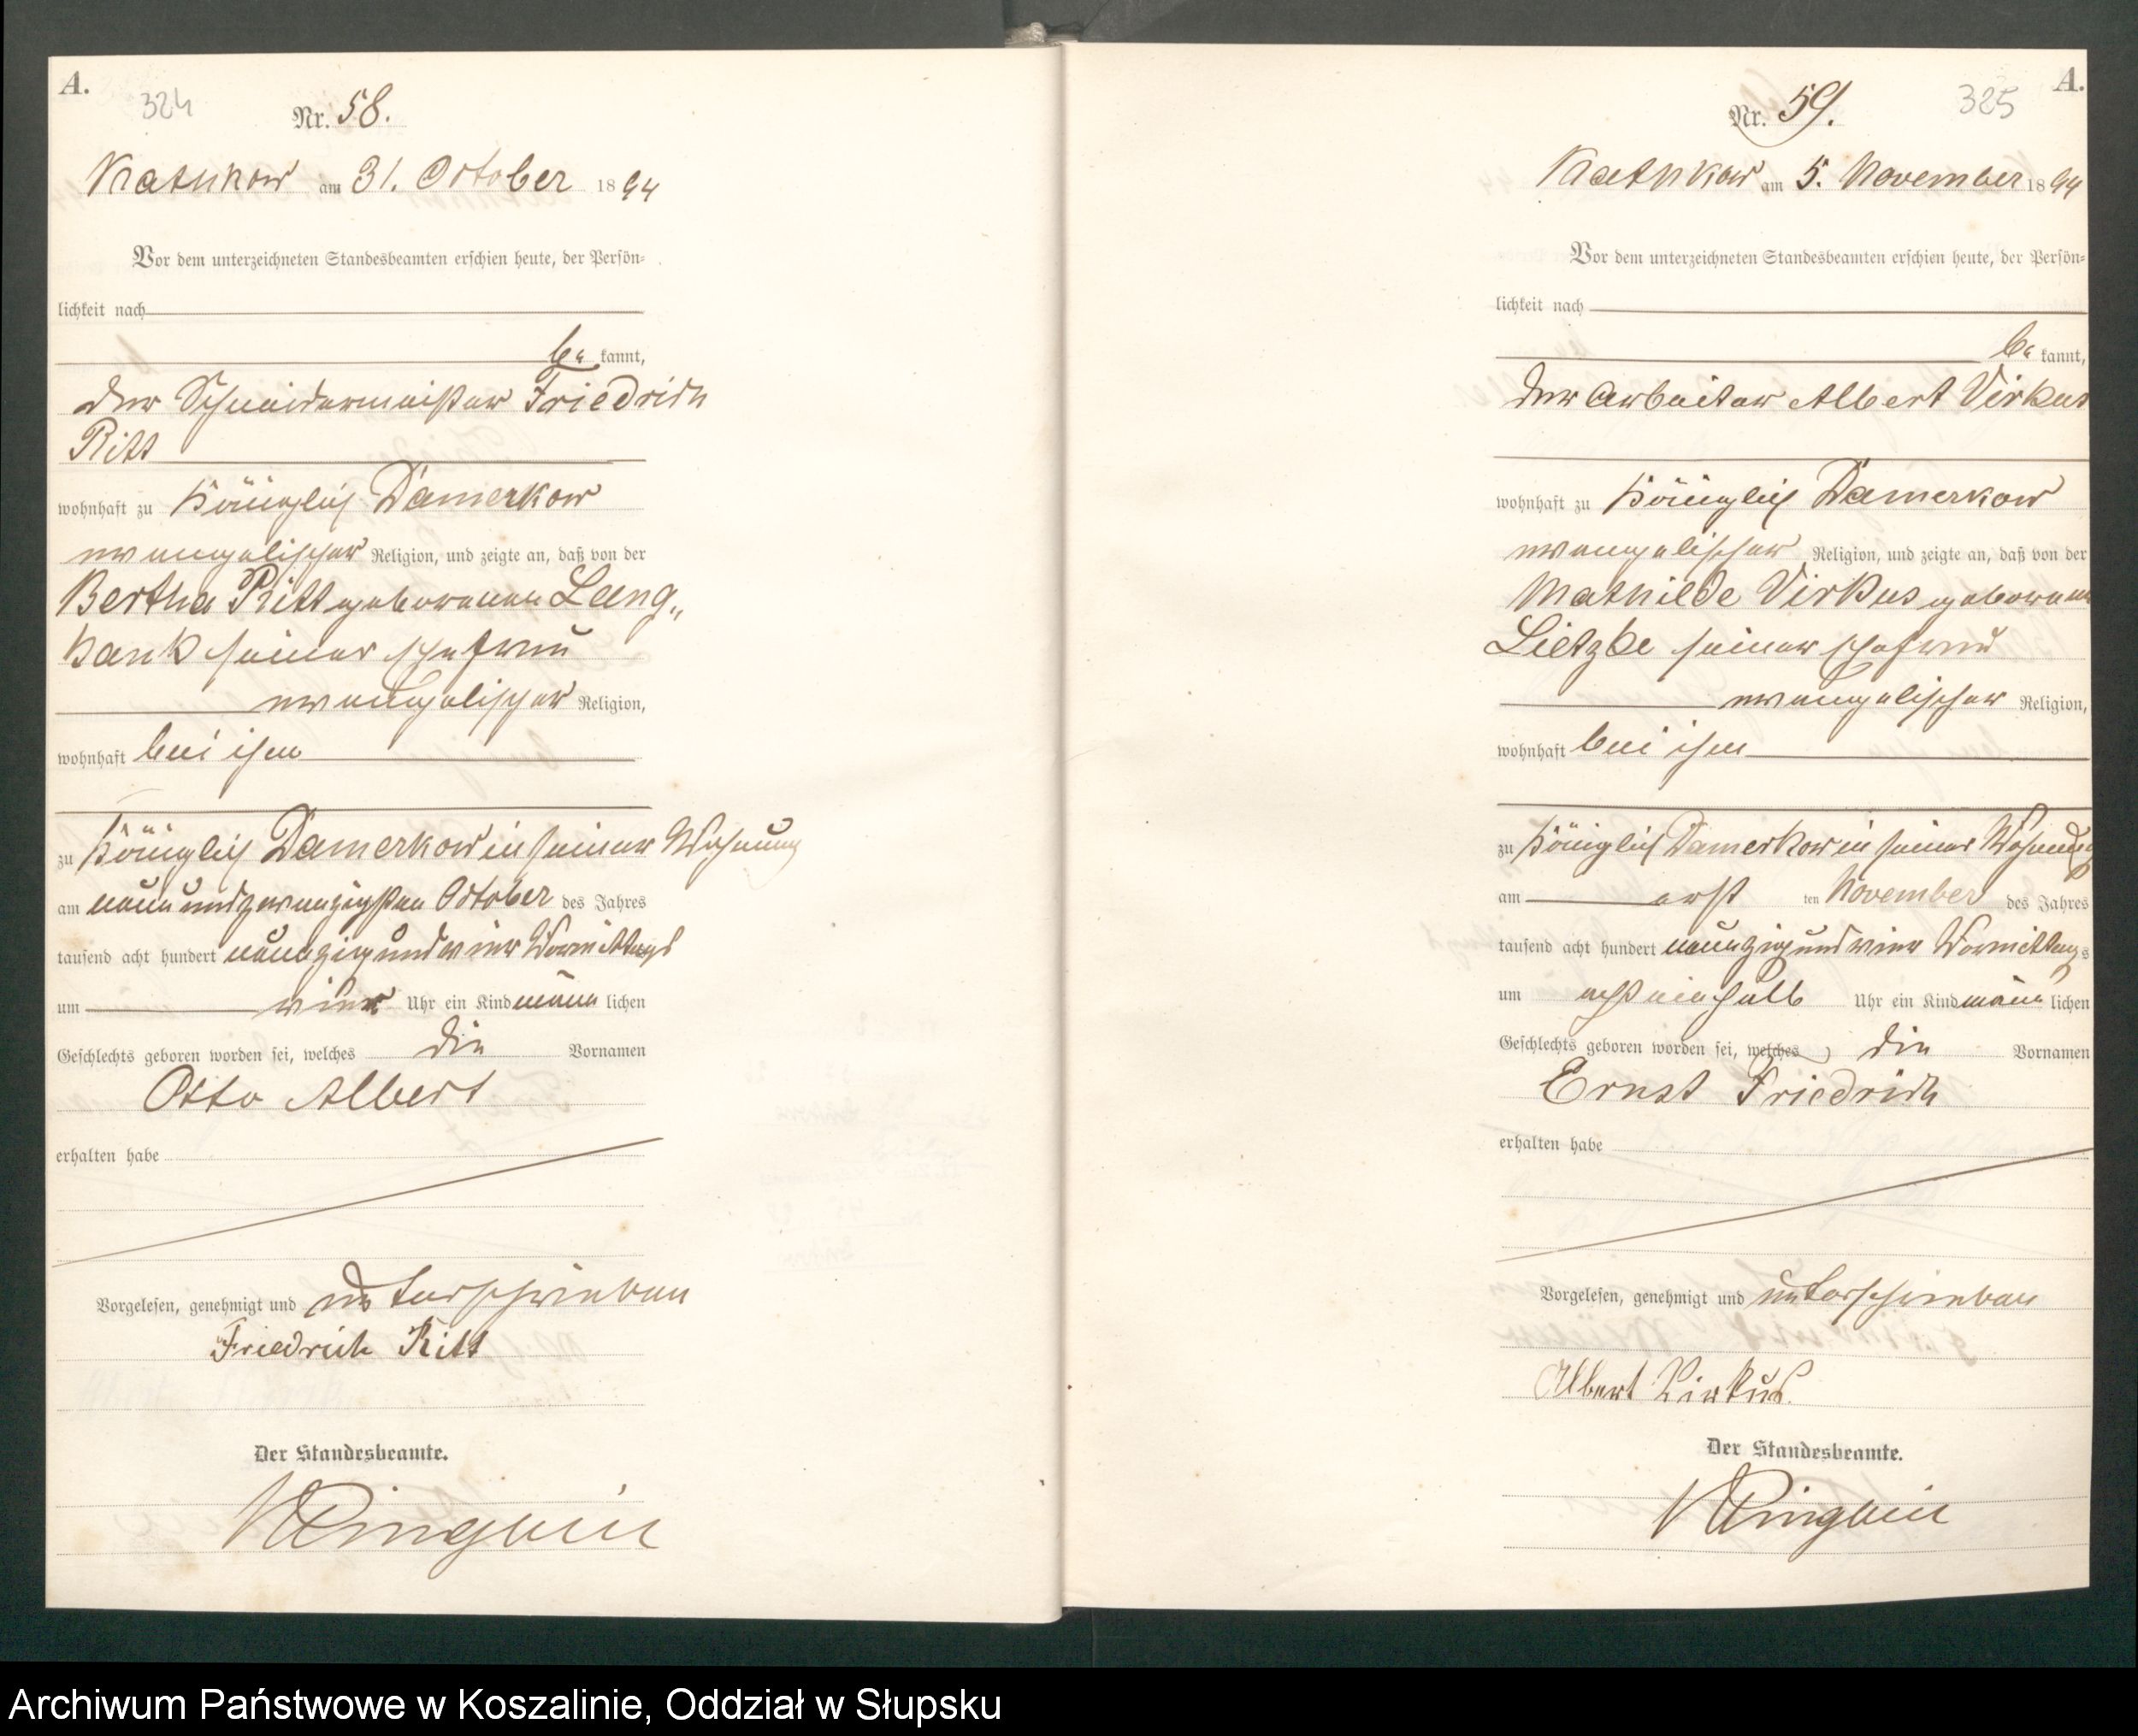 A.
324
Nr. 58.
Kathkow am 31. October 1894
Vor dem unterzeichneten Standesbeamten erschien heute, der Persön-
lichkeit nach
be kannt,
der Schneidermeister Friedrich
Ritt
wohnhaft zu Königlich Damerkow
evangelischer Religion, und zeigte an, daß von der
Bertha Ritt geborenen Lang„
kank seiner Ehefrau
evangelischer Religion,
wohnhaft bei ihm
zu Königlich Damerkow in seiner Wohnung
am neunundzwanzigsten October des Jahres
tausend acht hundert neunzig und vier Vormittags
um vier Uhr ein Kind männ lichen
Geschlechts geboren worden sei, welches die Vornamen
Otto Albert
erhalten habe
Vorgelesen, genehmigt und unterschrieben
Friedrich Ritt
Der Standesbeamte.
A.
325
Nr. 59.
Kathkow am 5. November 1894
Vor dem unterzeichneten Standesbeamten erschien heute, der Persön-
lichkeit nach
be kannt,
der Arbeiter Albert Virkus
wohnhaft zu Königlich Damerkow
evangelischer Religion, und zeigte an, daß von der
Mathilde Virkus geborenen
Lietzke seiner Ehefrau
evangelischer Religion,
wohnhaft bei ihm
zu Königlich Damerkow in seiner Wohnung
am erst ten November des Jahres
tausend acht hundert neunzig und vier Vormittags
um achteinhalb Uhr ein Kind männ lichen
Geschlechts geboren worden sei, welches die Vornamen
Ernst Friedrich
erhalten habe
Vorgelesen, genehmigt und unterschrieben
Albert Virkus.
Der Standesbeamte.
Archiwum Państwowe w Koszalinie, Oddział w Słupsku